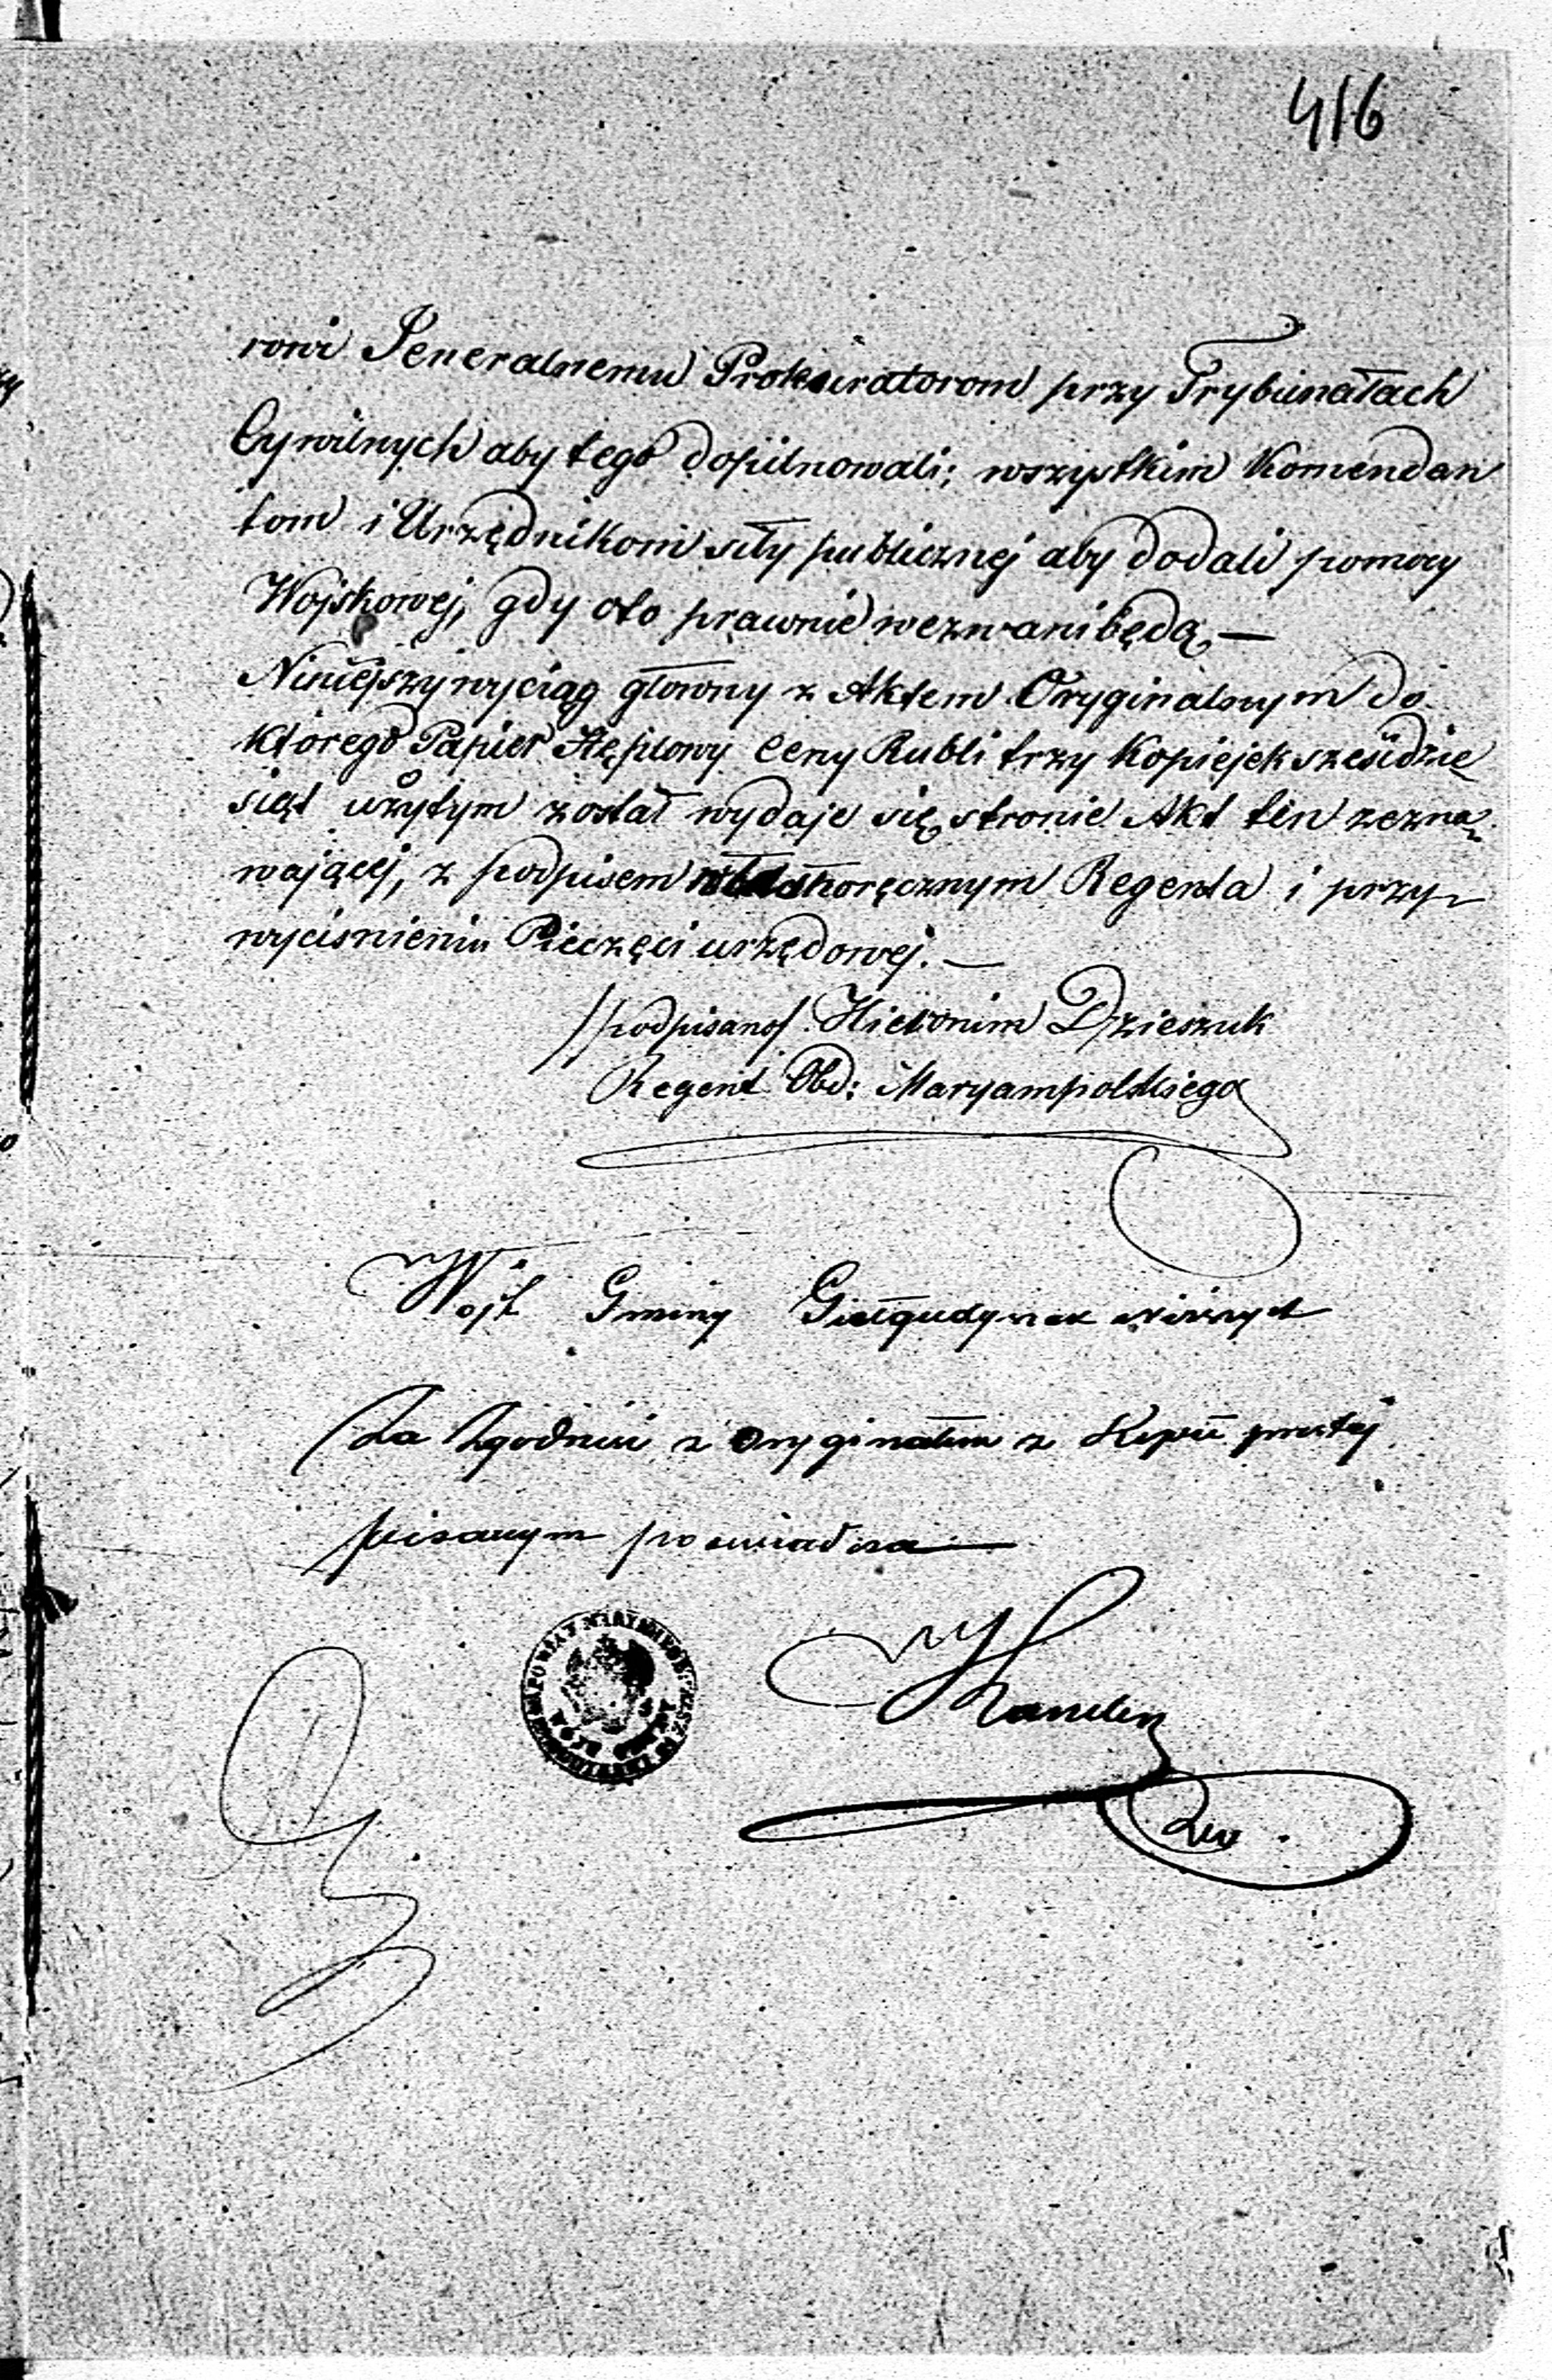 416
rowi Jeneralnemu Prokuratorom przy Trybunałach
Cywilnych aby tego dopilnowali; wszystkim Komendan
tom i Urzędnikom siły publicznej aby dodali pomocy
Wojskowej, gdy oto prawnie wezwani będą, —
Niniejszy wyciąg głowny z Aktem Oryginalnym do
ktorego Papier Stęplowy Ceny Rubli trzy Kopiejek sześdzie
siąt użytym został wydaje się stronie Akt ten zezna
wającej, z podpisem własnoręcznym Regenta i przy
wyciśnieniu Pieczęci urzędowej. —
/podpisano/ Hieronim Dzieszuk
Regent Obd: Maryampolskiego
Wojt Gminy
Za Zgodność z Oryginałem z Kopii prostej
pisanym poswiadcza —
POWIAT
WÓJT GMINY